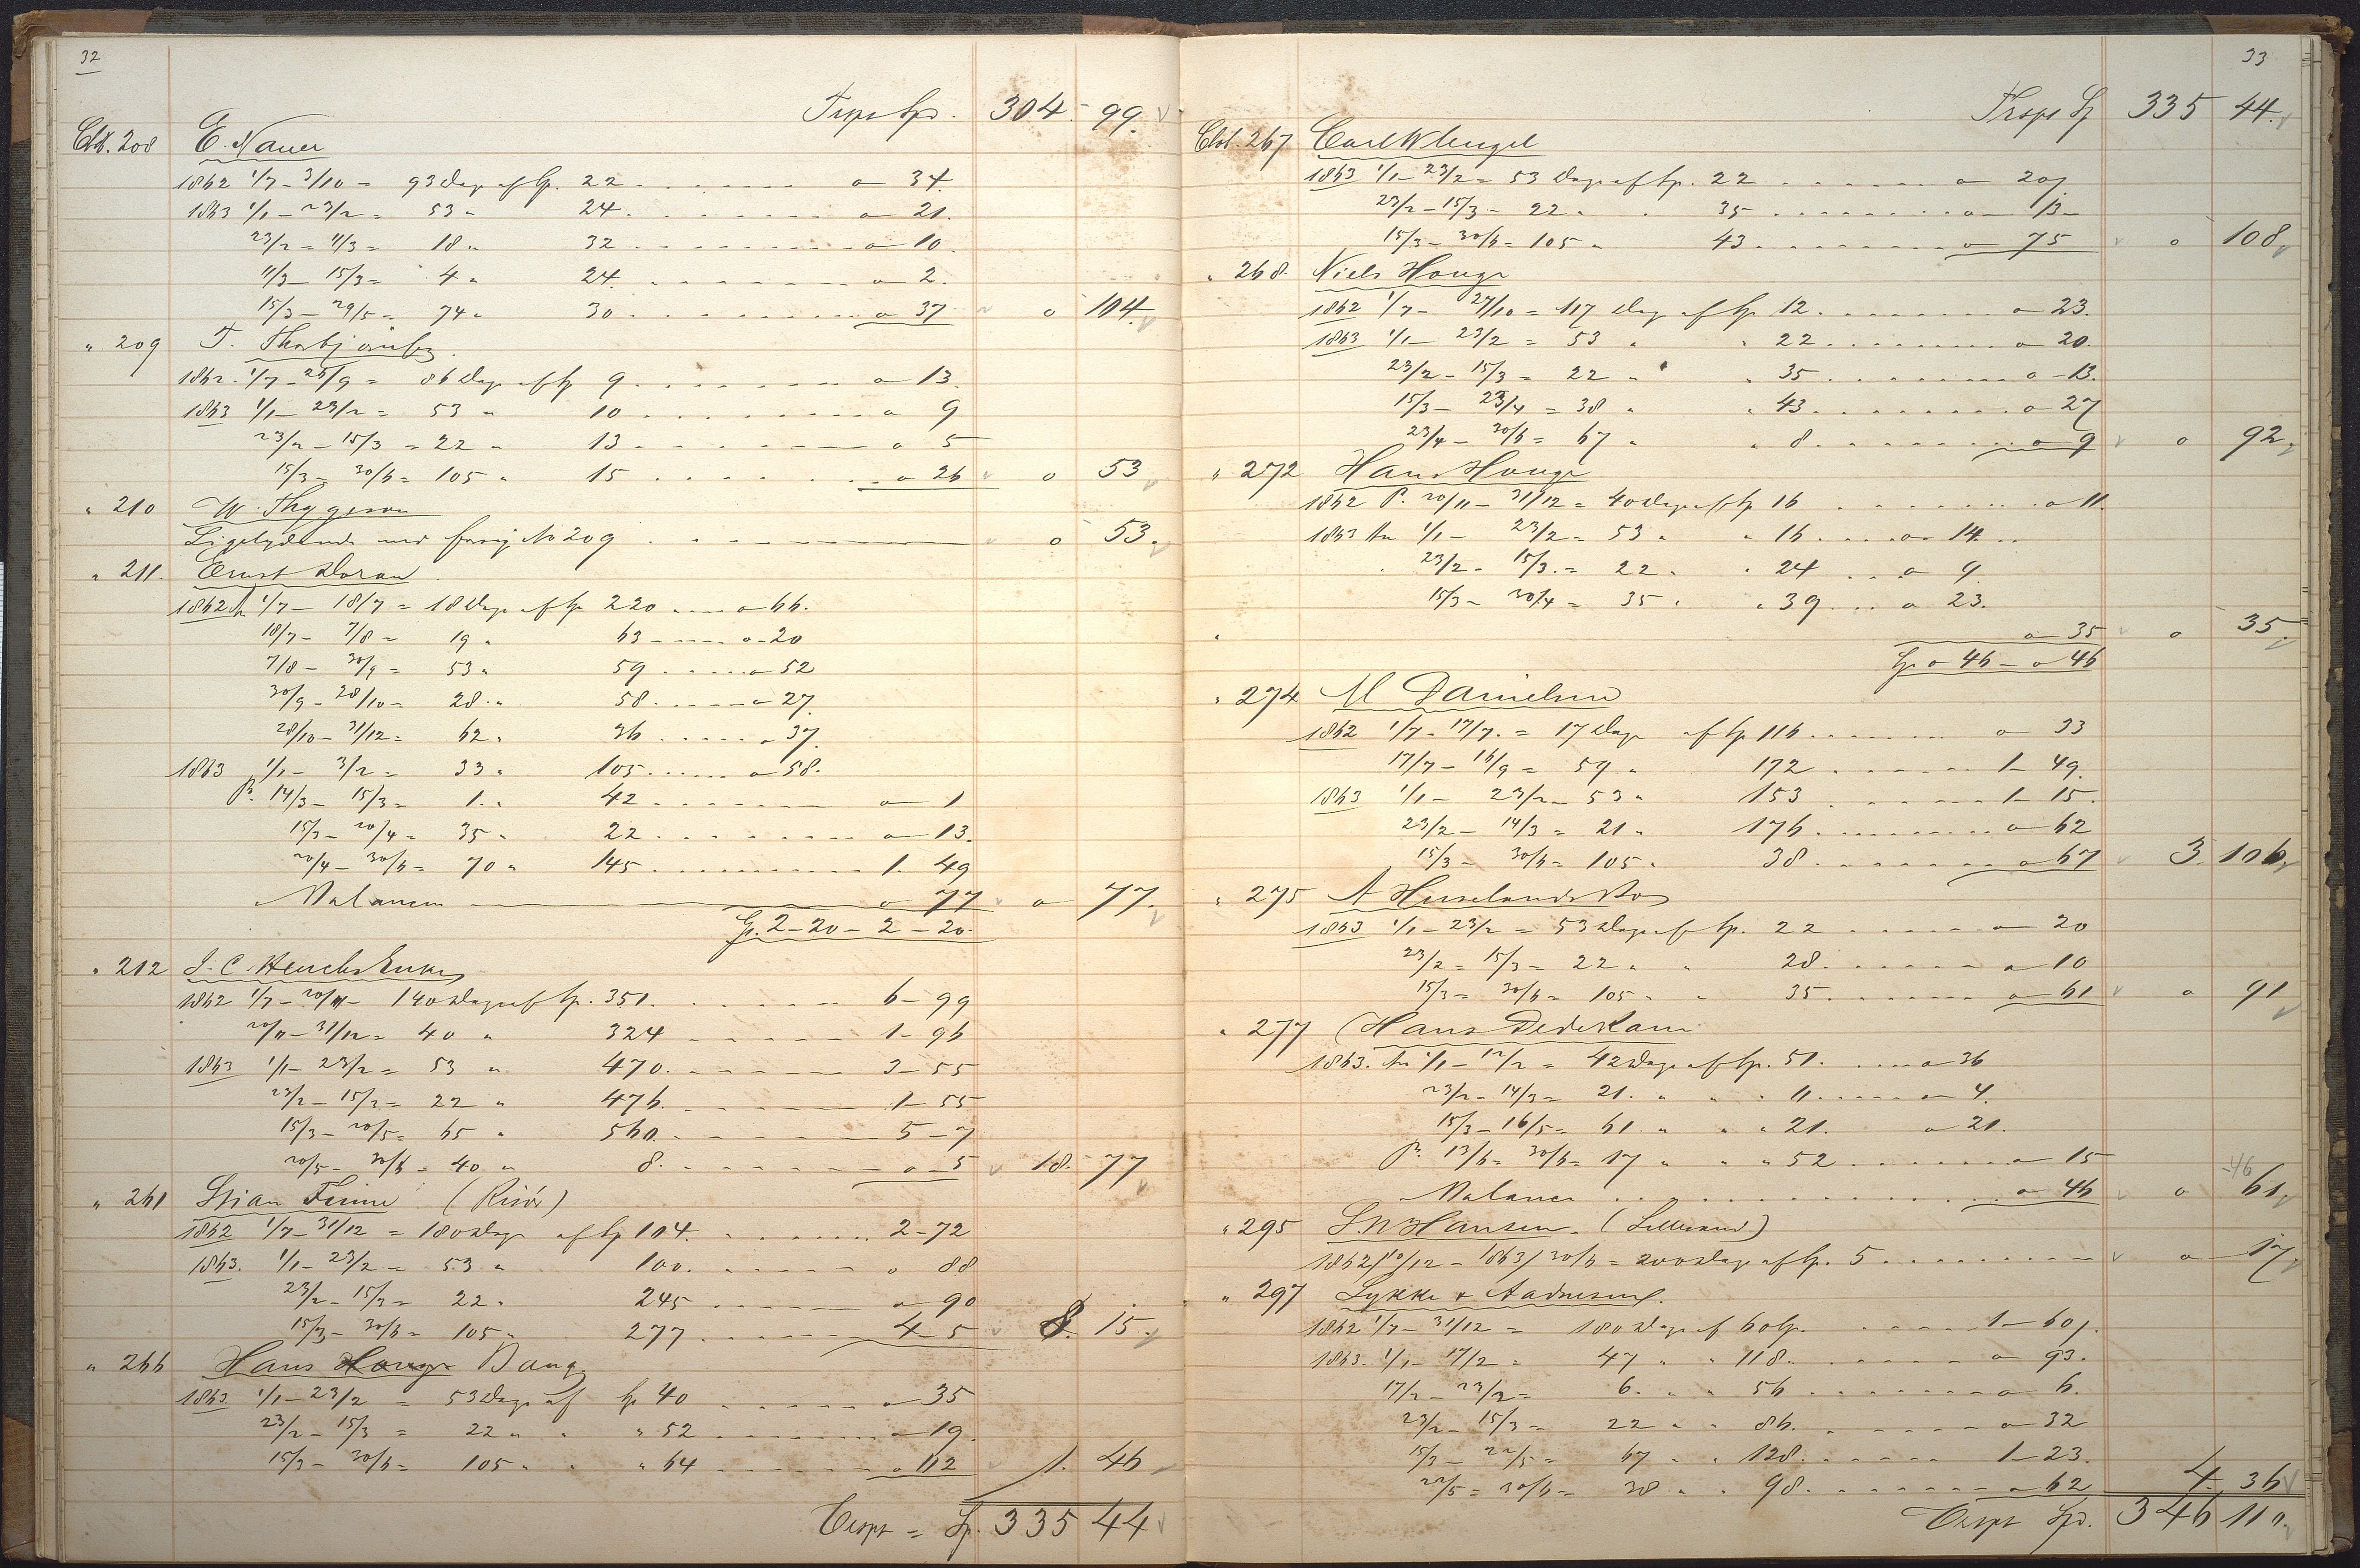 32
Trspt Spd. 304 - 99.
Cto. 208 E. Nauer
1862 1/7 - 3/10 = 93 Dage af Sp. 22 o 34.
1863 1/1 - 23/2 = 53 " 24. o 21.
23/2 = 11/3 = 18 " 32 o 10.
11/3 - 15/3 = 4 " 24. o 2.
15/3 - 29/5 = 74 " 30 o 37 o 104.
" 209 T.
1862. 1/7 - 25/9 = 86 Dage af Sp 9 o 13.
1863 1/1 - 23/2 = 53 " 10 o 9
23/2 - 15/3 = 22 " 13 o 5
15/3 = 30/6 = 105 " 15 o 26 o 53
" 210 W. Thygeson
Ligelydende med forrig No 209 o 53.
" 211. Ernst Doran
1862 An 1/7 - 18/7 = 18 Dage af Sp 220 o 66.
18/7 - 7/8 = 19 " 63 o 20
7/8 - 30/9 = 53 " 59 o 52
30/9 - 28/10 = 28 " 58. o 27.
28/10 - 31/12 = 62 " 36 o 37.
1863 1/1 - 3/2 = 33 " 105 o 58.
Pr. 14/3 - 15/3 = 1. " 42 o 1
15/3 - 20/4 = 35 " 22 o 13.
20/4 - 30/6 = 70 " 145 1. 49
Balancen o 77 o 77.
Sp. 2 - 20 - 2 - 20.
" 212 J. C. Heuchs Enke
1862 1/7 - 20/11 - 140 Dage af Sp. 351. 6 - 99
20/11 - 31/12 = 40 " 324 1 - 96
1863 1/1 - 23/2 = 53 " 470. 3 - 55
23/2 - 15/3 = 22 " 476. 1 - 55
15/3 - 20/5 = 65 " 560. 5 - 7
20/5 - 30/6 = 40 " 8. o - 5 18. 77
" 261 Stian Finne (Risör)
1862 1/7 - 31/12 = 180 Dage af Sp 104. 2 - 72
1863. 1/1 - 23/2 = 53 " 100. o 88
23/2 - 15/3 = 22 " 245 o 90
15/3 - 30/6 = 105 " 277 4 - 5 8. 15.
" 266 Hans Houge Bang
1863. 1/1 - 23/2 = 53 Dage af Sp 40 o 35
23/2 - 15/3 = 22 " " 52 o 19.
15/3 - 30/6 = 105 " " 64 o 112 1. 46
Trspt = Sp. 335 44
33
Trspt Sp 335 44.
Cto. 267 Carl W Lengel
1863 1/1 - 23/2 = 53 Dage af Sp. 22 o 20.
23/2 - 15/3 - 22 " 35 o 13 -
15/3 - 30/6 = 105 " 43 o 75 o 108
" 268. Niels Houge
1862 1/7 - 27/10 = 117 Dage af Sp 12. o 23.
1863 1/1 - 23/2 = 53 " " 22 o 20.
23/2 - 15/3 = 22 " " 35 o - 13.
15/3 - 23/4 = 38 " " 43 o 27
23/4 - 30/6 = 67 " " 8. o 9 o 92
" 272 Hans Houge
1862 P. 20/11 - 31/12 = 40 Dage af Sp 16 o 11.
1863 An 1/1 - 23/2 = 53 " " 16 o 14.
23/2 - 15/3. = 22 " " 24 o 9.
15/3 - 20/4 = 35 " " 39 o 23.
o 35 o 35.
Sp o 46 - o 46
" 274 M Danielsen
1862 1/7 - 17/7. = 17 Dage af Sp 116 o 33
17/7 - 16/9 = 59 " 172 1 - 49.
1863 1/1 - 23/2 - 53 " 153 1 - 15.
23/2 - 14/3 = 21 " 176 o 62
15/3 - 30/6 = 105 " 38. o 67 3. 106
" 275 A Huselands Bo
1863 1/1 - 23/2 = 53 Dage af Sp. 22 o 20
23/2 = 15/3 = 22 " " 28. o 10
15/3 = 30/6 = 105 " " 35. o 61 o 91
" 277 Hans Dedekam
1863. An 1/1 - 12/2 = 42 Dage af Sp. 51. o 36
23/2 - 14/3 = 21. " " " 11 o 4.
15/3 - 16/5 = 61 " " " 21. o 21.
Pr. 13/6 = 30/6 = 17 " " " 52 o 15
-46
Balancen o 46 o 61
" 295 S N Hansen. (Lillesand)
1862/10/12 - 1863/30/6 = 200 Dage af Sp. 5 o 17
" 297 Lykke & Aadnesen.
1862 1/7 - 31/12 = 180 Dage af 60 Sp. 1 - 60.
1863. 1/1 - 17/2 = 47 " " 118 o 93.
17/2 - 23/2 = 6. " " 56 o 6.
23/2 - 15/3 = 22 " " 86. o 32
15/3 - 22/5 = 67 " " 128 1 - 23.
22/5 = 30/6 = 38 " " 98. o 62 4. 36
Trspt Spd. 346 110.